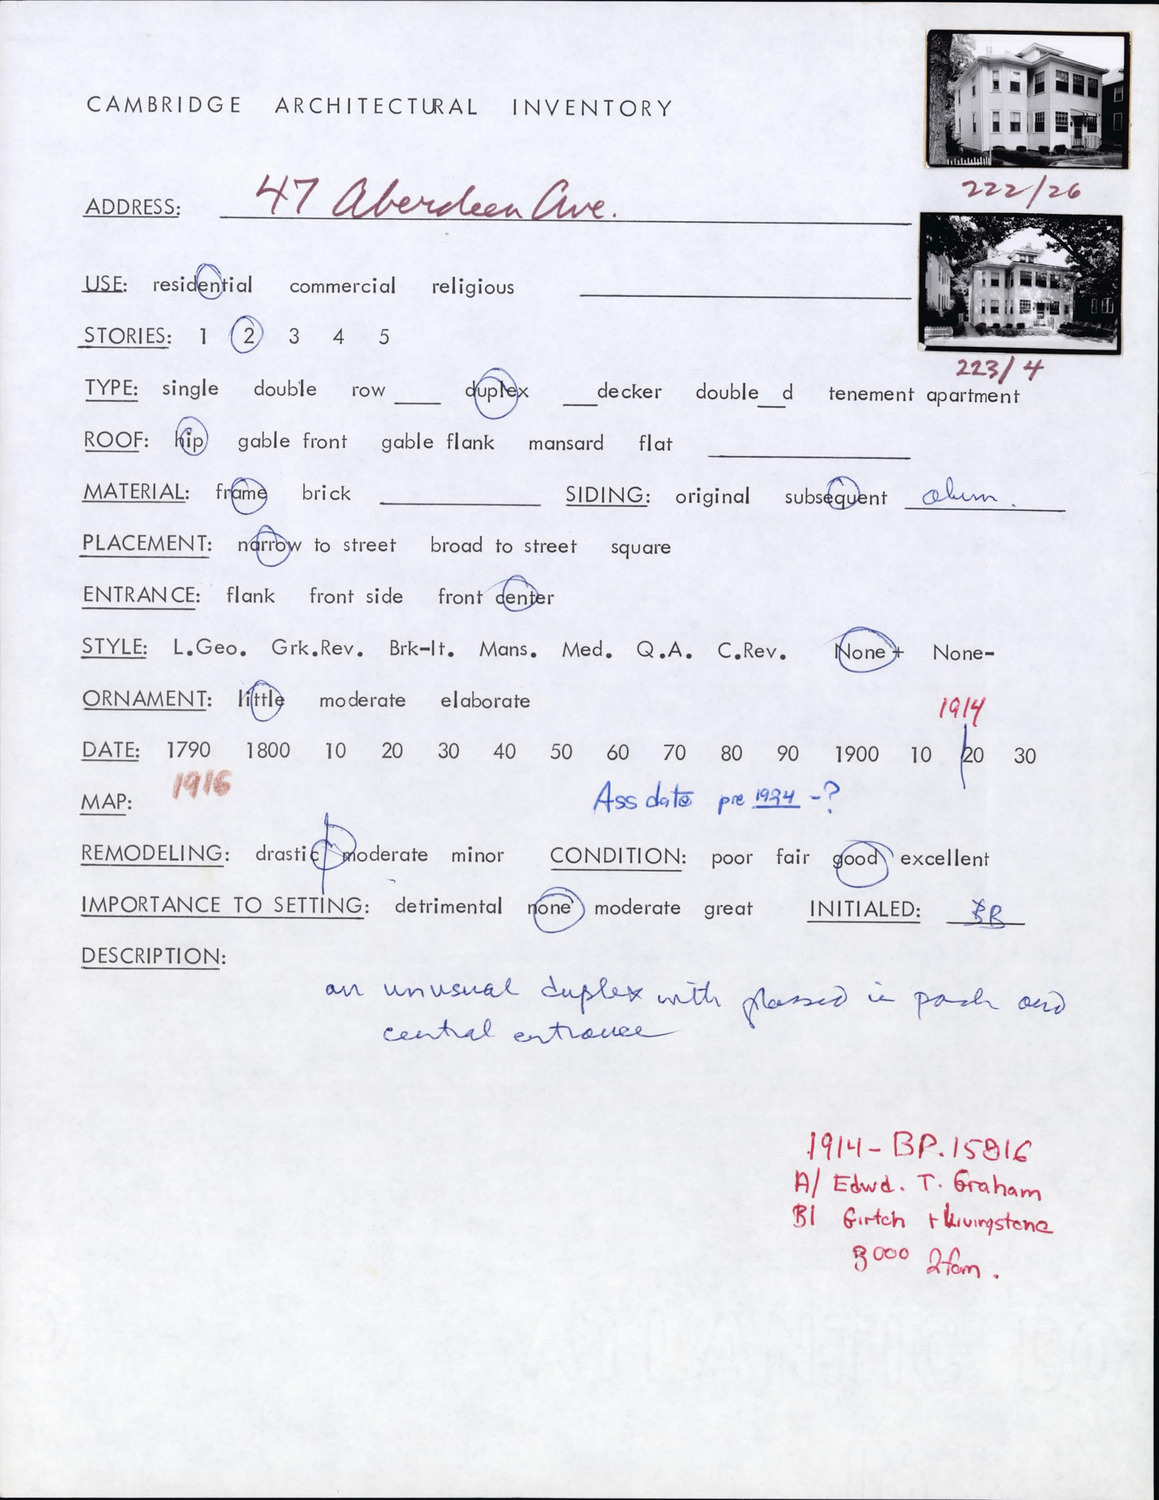 CAMBRIDGE ARCHITECTURAL INVENTORY
222/26
ADDRESS: 47 Aberdeen Ave.
USE: residential commercial religious
STORIES: 1 2 3 4 5
223/4
TYPE: single double row ____ duplex ___decker double__d tenement apartment
ROOF: hip gable front gable flank mansard flat
MATERIAL: frame brick SIDING: original subsequent alum.
PLACEMENT: narrow to street broad to street square
ENTRANCE: flank front side front center
STYLE: L.Geo. Grk.Rev. Brk-It. Mans. Med. Q.A. C.Rev. None+ None-
ORNAMENT: little moderate elaborate
1914
DATE: 1790 1800 10 20 30 40 50 60 70 80 90 1900 10 20 30
1916
MAP: Ass date pre 1924 -?
REMODELING: drastic moderate minor CONDITION: poor fair good excellent
IMPORTANCE TO SETTING: detrimental none moderate great INITIALED: BR
DESCRIPTION:
an unusual duplex with glassed in porch and
central entrance
1914- BP. 15816
A/ Edwd. T. Graham
B/ Girtch + Livingstone
8000 2fam.